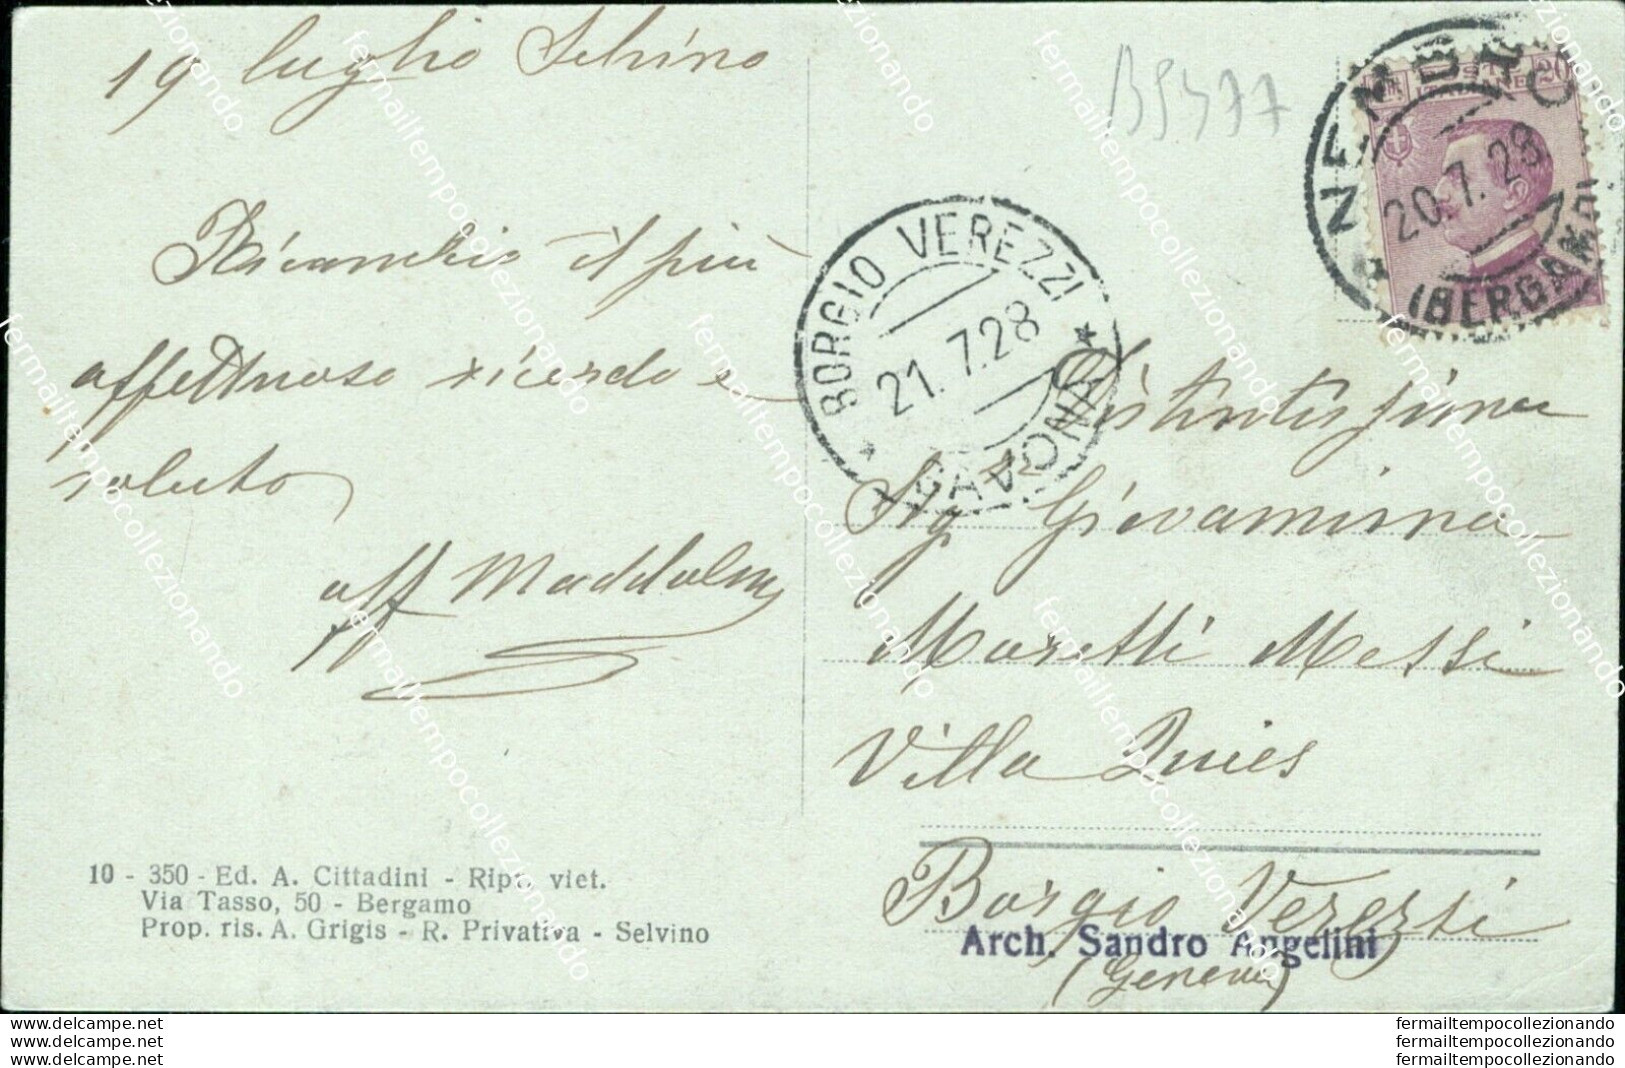 19 luglio Selvino
Ricambio il più
affettuoso ricordo e
saluto
aff Maddalena
10 - 350 - Ed. A. Cittadini - Ripr. viet.
Via Tasso, 50 - Bergamo
Prop. ris. A. Grigis - R. Privativa - Selvino
B5477
NEMBRO
20.7.28
(BERGAMO)
POSTE ITALIANE
20
BORGIO VEREZZI
21.7.28
* (SAVONA) *
Distintissima
Sig Giovannina
Moretti Messi
Villa Quies
Borgio Verezzi
Arch. Sandro Angelini
(Genova)
fermailtempocollezionando
www.delcampe.net
www.delcampe.net
www.delcampe.net
fermailtempocollezionando
fermailtempocollezionando
fermailtempocollezionando